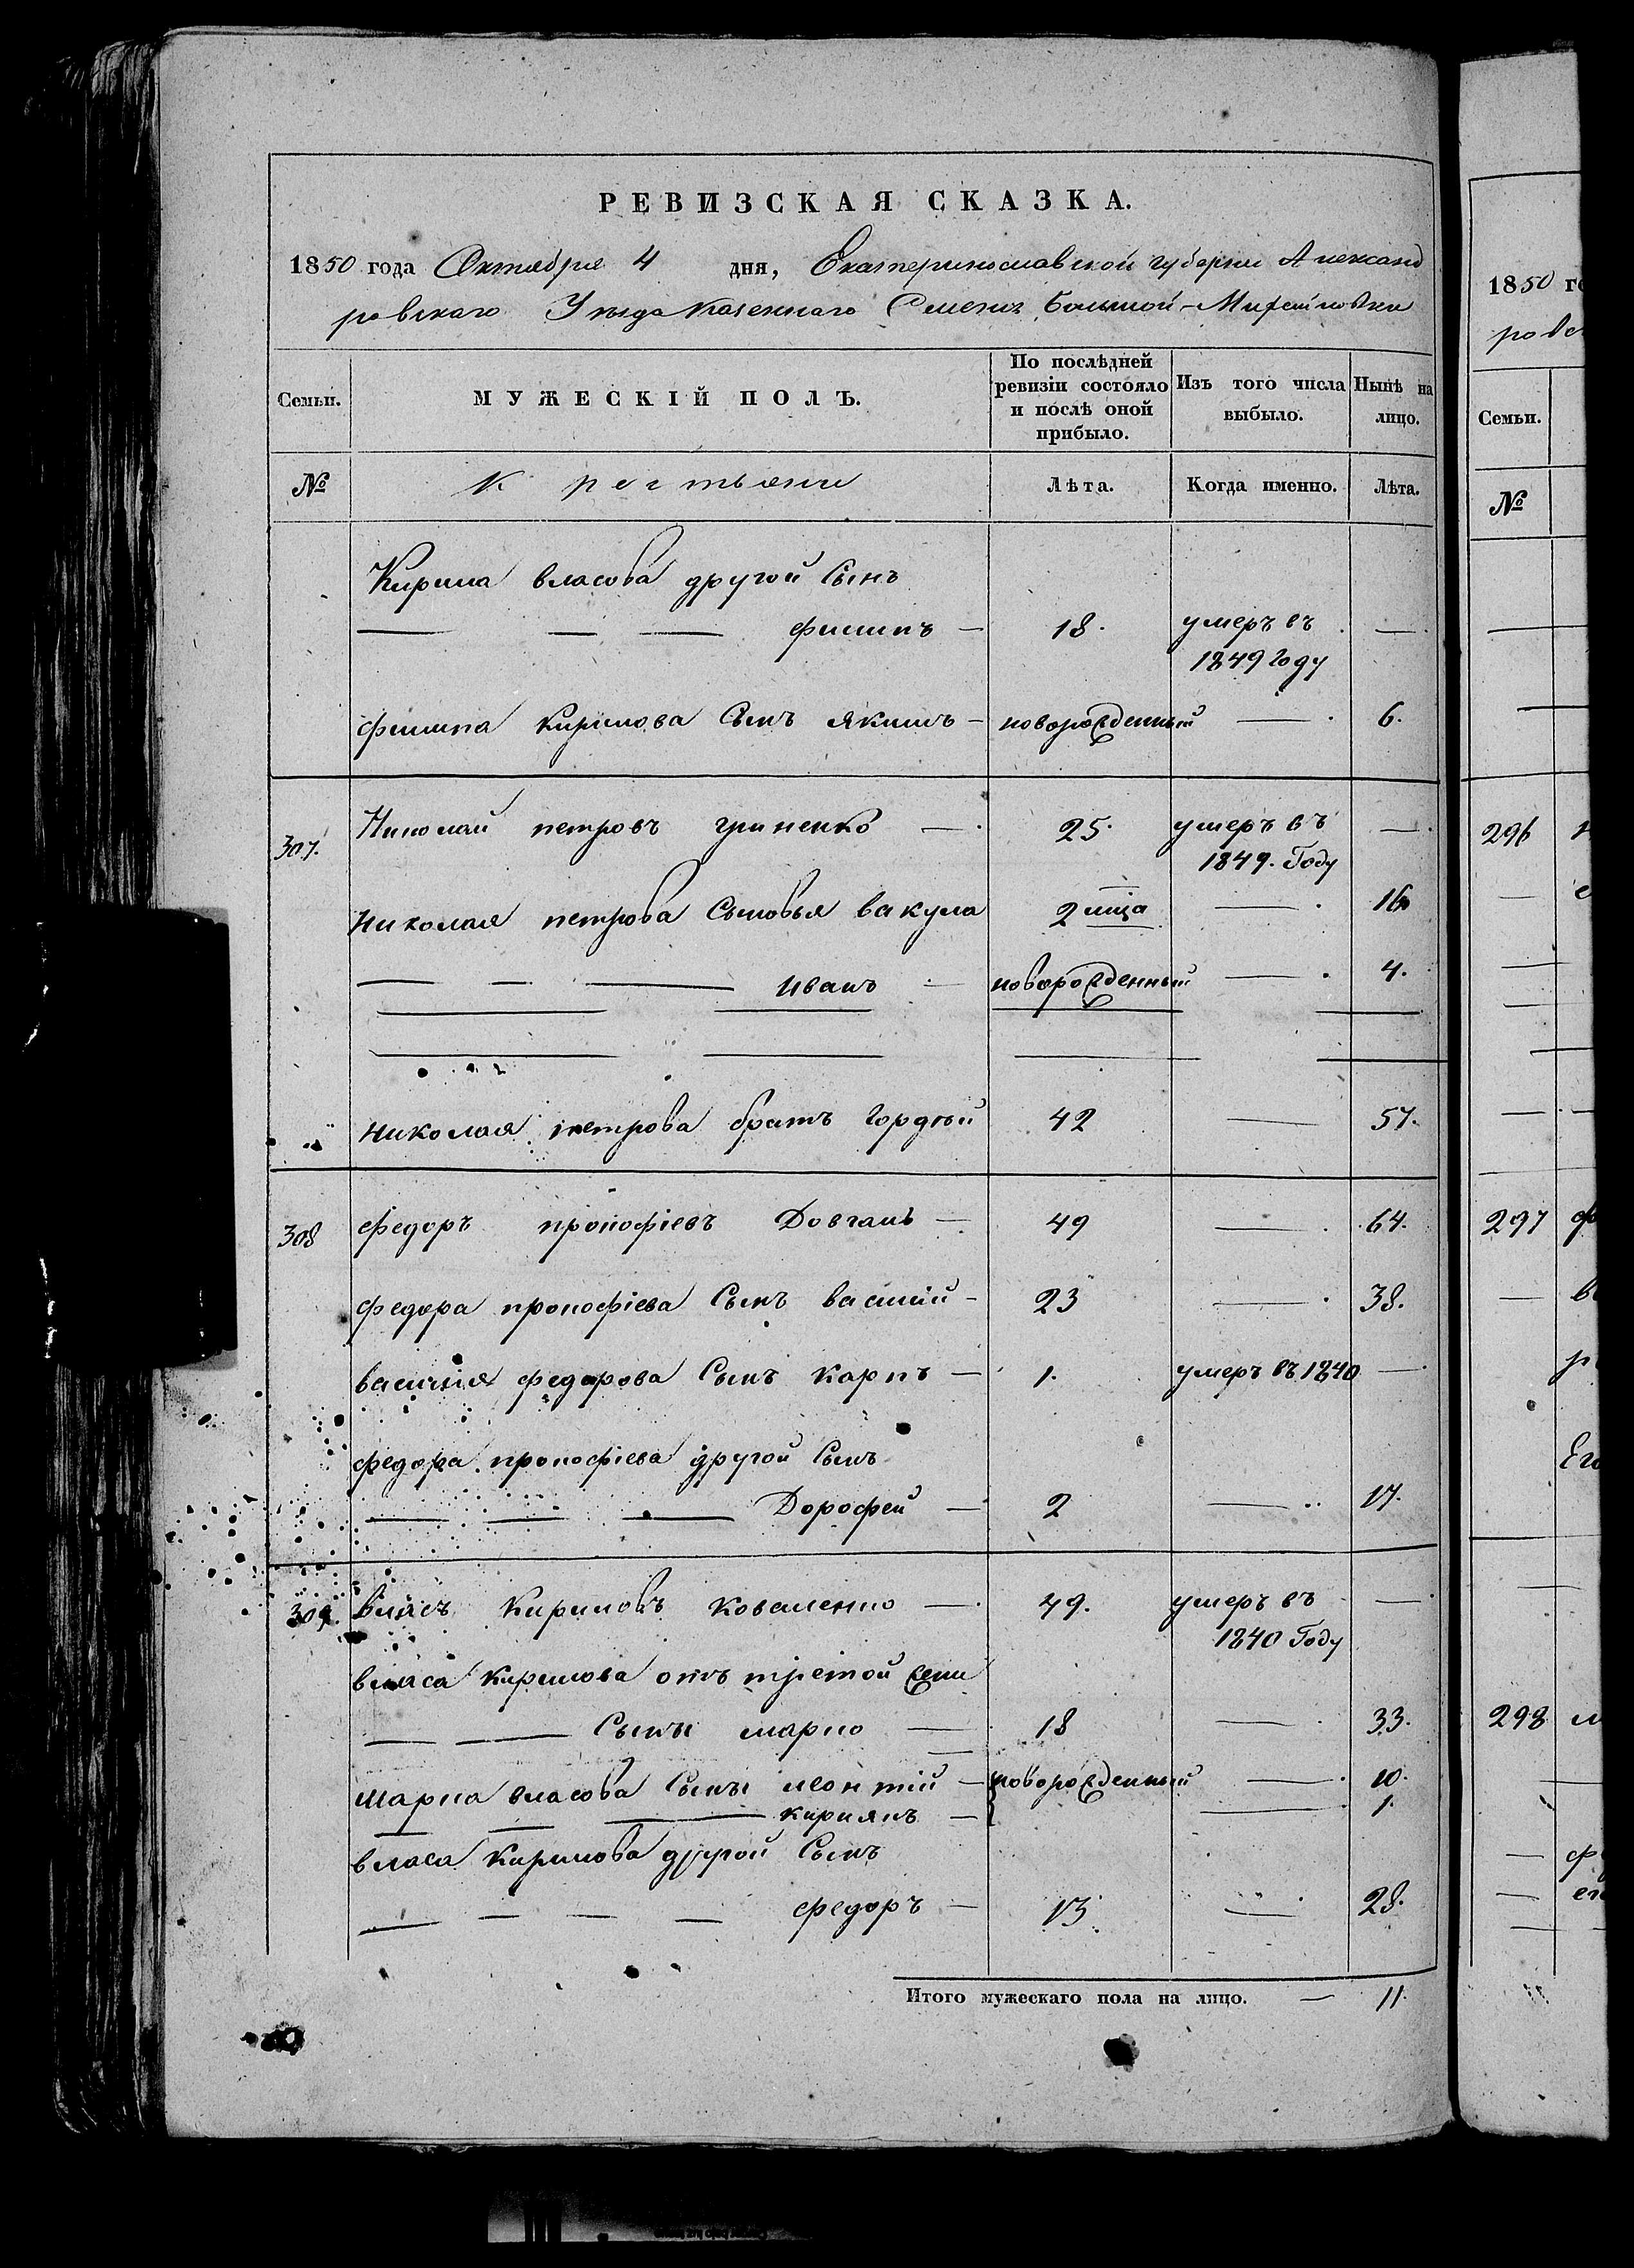 РЕВИЗСКАЯ СКАЗКА.
1850 года Октября 4 дня, Екатеринославской губернии Александ
ровскаго Уезда казеннаго Селенія Большой-Михайловки
Семьи.
МУЖЕСКІЙ ПОЛЪ.
По послѣдней ревизіи состояло и послѣ оной прибыло.
Изъ того числа выбыло.
Нынѣ на лицо.
№ Крестьяне Лѣта. Когда именно. Лѣта.
Кирила власова другой Сынъ
филипъ — 18. умеръ въ —
1849 Году
филипа кирилова Сынъ якимъ — новорожденный — 6.
307. Николай петровъ гриненко — 25. умеръ въ —
1849. Году
николая петрова Сыновья вакула 2 мца — 16
иванъ — новорожденный — 4.
николая петрова братъ Гордѣй 42 — 57.
308 федоръ прокофіевъ Довгаль — 49 — 64.
федора прокофіева Сынъ василій — 23 — 38.
василія федорова Сынъ карпъ — 1. умеръ въ 1840 —
федора прокофіева другой Сынъ
Дорофей — 2 — 17.
309. власъ Кириловъ коваленко — 49. умеръ въ —
1840 Году
власа кирилова отъ третой Жены
Сыны марко — 18 — 33.
марка власова Сыны леонтій — новорожденный — 10.
кириянъ — — 1.
власа Кирилова другой Сынъ
федоръ — 13 — 28.
Итого мужескаго пола на лицо. — 11.
1850 го
ровс
Семьи.
№
296
297
298